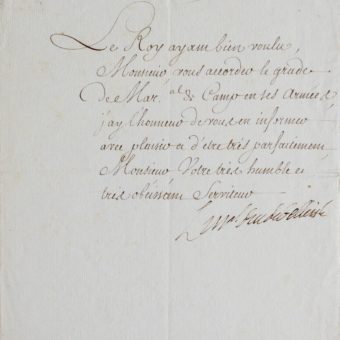 Le Roy ayant bien voulu,
Monsieur, vous accorder le grade
de Mar.al de Camp en ses Armées,
j'ay l'honneur de vous en informer
avec plaisir et d'être très parfaitement,
Monsieur, Votre très humble et
très obéissant Serviteur